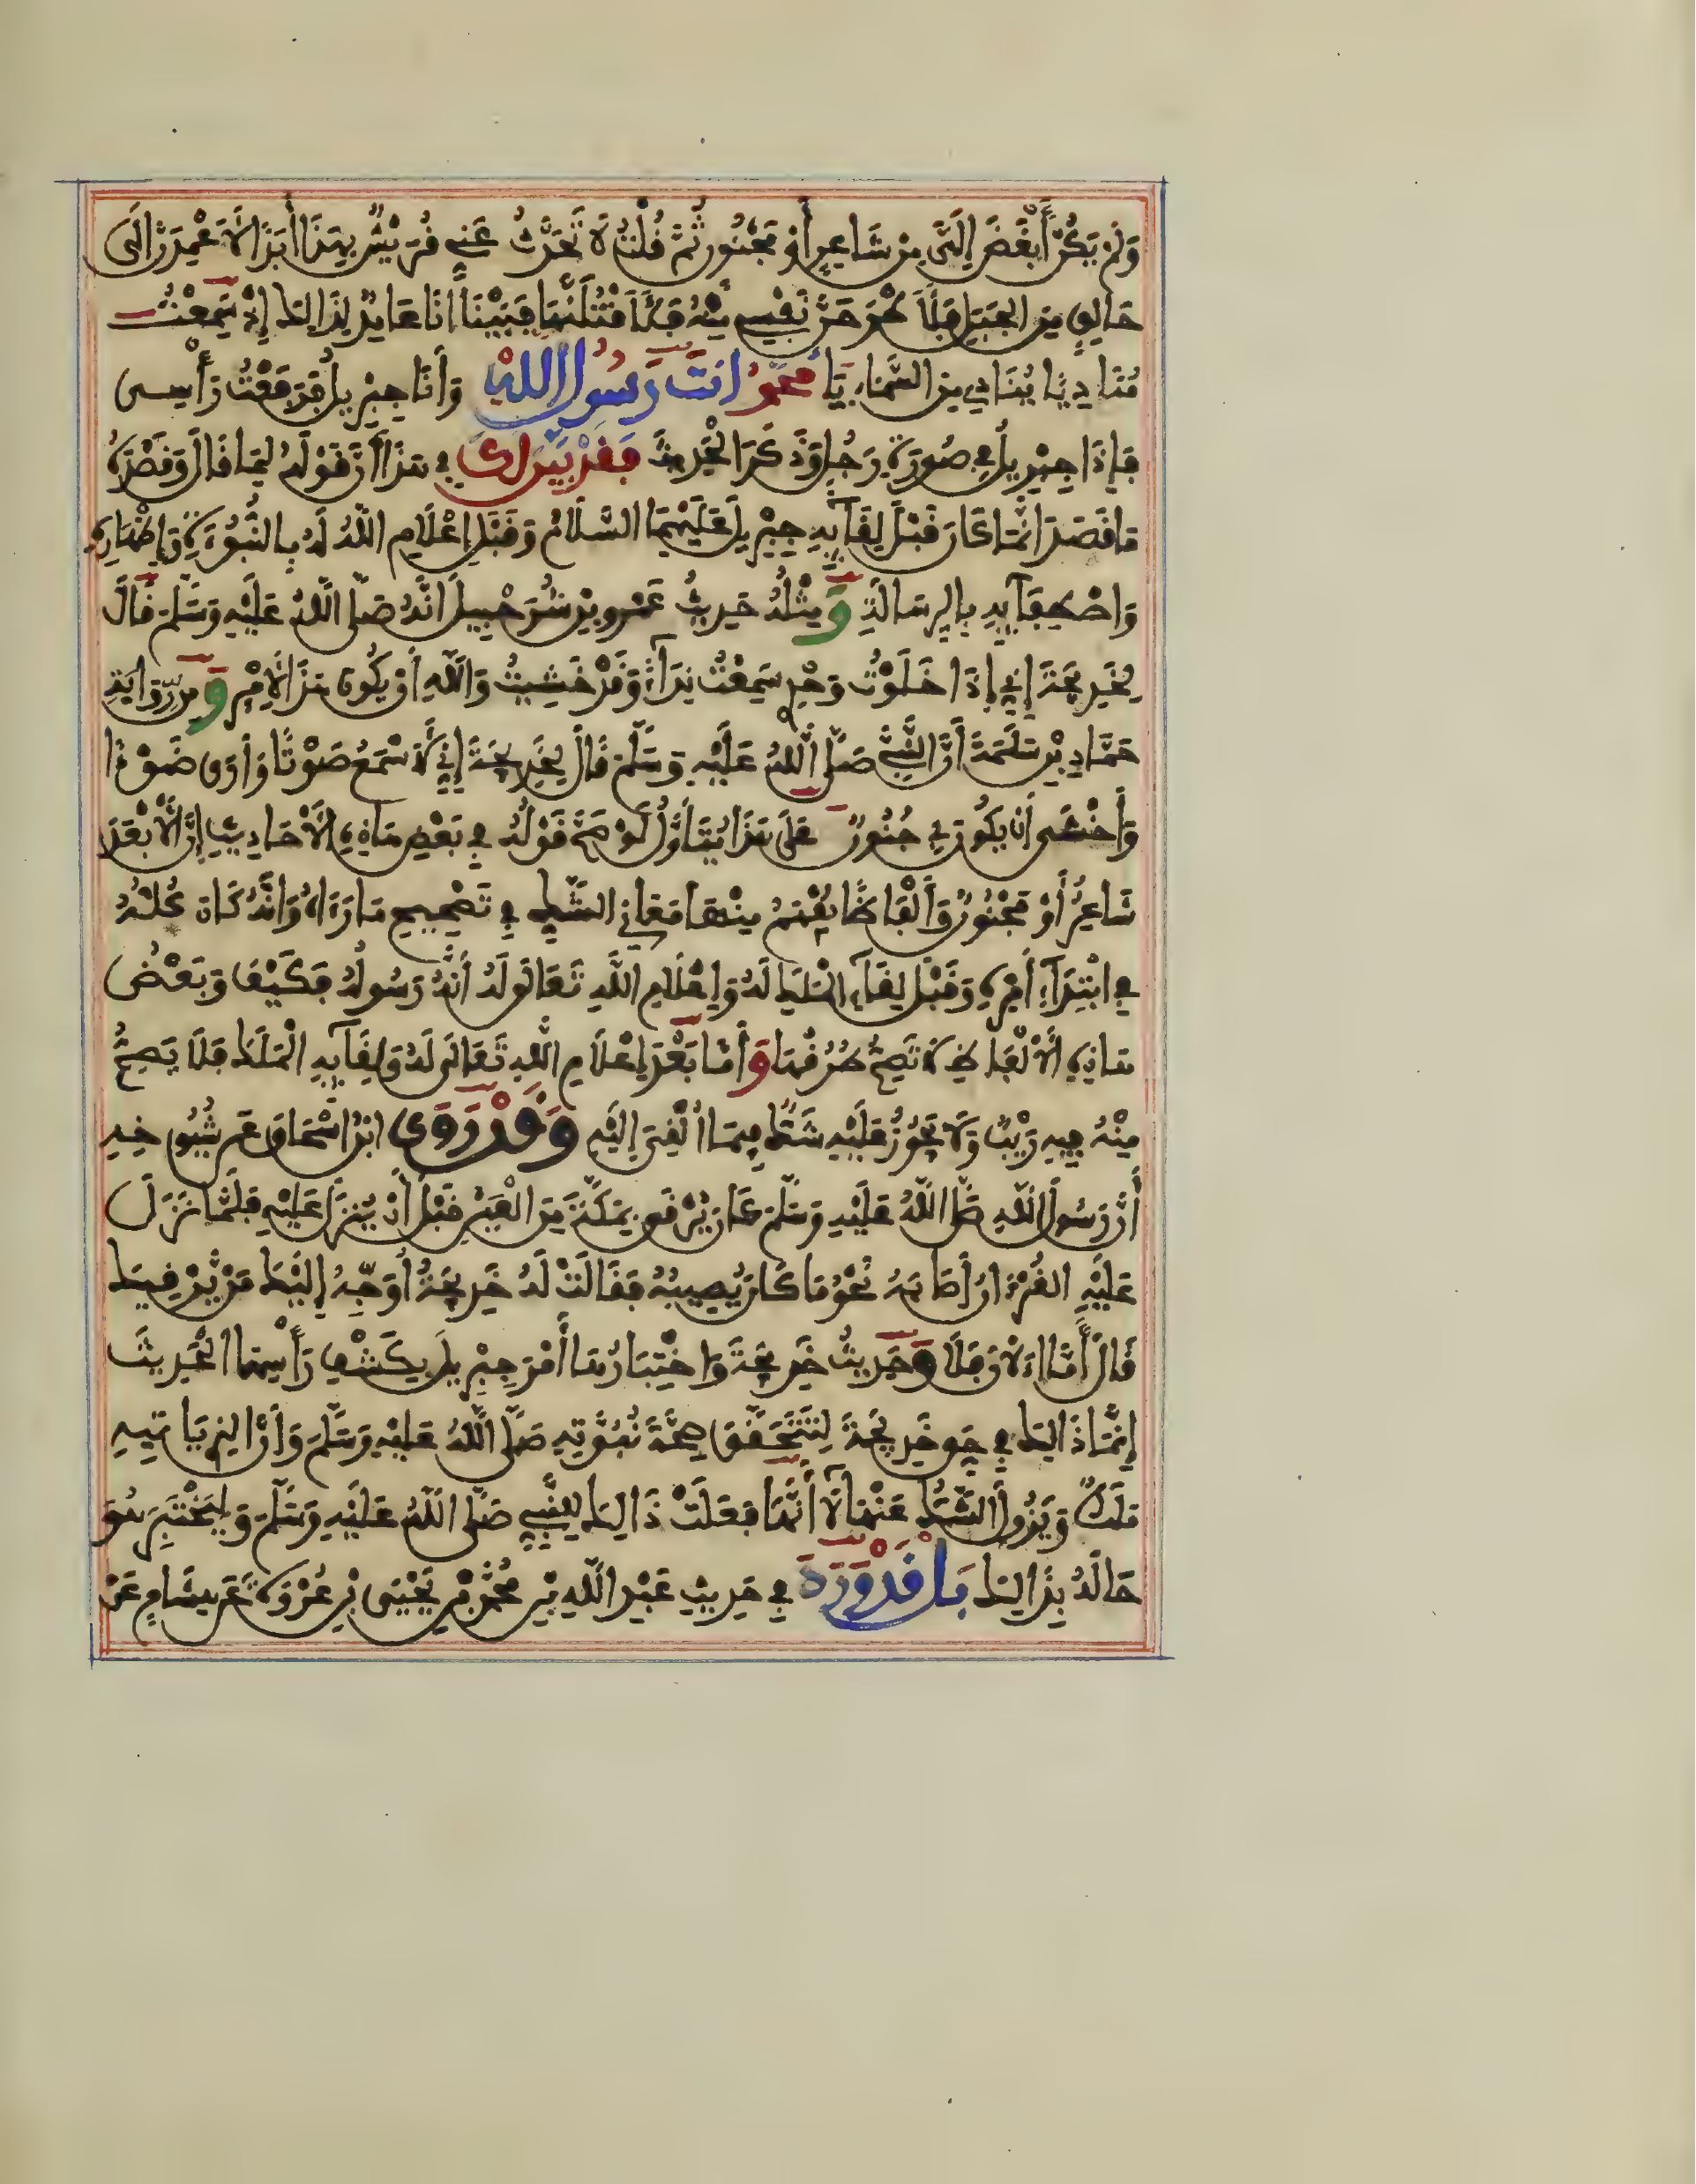 وَلَمْ يَكُنْ أَبْغَضَ إِلَيَّ مِنْ شَاعِرٍ أَوْ مَجْنُونٍ ثُمَّ قُلْتُ لَا تَحَدَّثُ عَنِّي قُرَيْشٌ بِهَذَا أَبَدًا لَأَعْمِدَنَّ إِلَى
حَالِقٍ مِنَ الْجَبَلِ فَلَأَطْرَحَنَّ نَفْسِي مِنْهُ فَلَأَقْتُلَنَّهَا فَبَيْنَا أَنَا عَامِدٌ لِذَالِكَ إِذْ سَمِعْتُ
مُنَادِيًا يُنَادِي مِنَ السَّمَاءِ يَا مُحَمَّدُ انتَ رَسُولُ اللَّهِ وَأَنَا جِبْرِيلُ فَرَفَعْتُ رَأْسِي
فَإِذَا جِبْرِيلُ فِي صُورَةِ رَجُلٍ وَذَكَرَ الْحَدِيثَ فَقَدْ بَيَّنَ لَكَ فِي هَذَا أَنَّ قَوْلَهُ لِمَا قَالَ وَقَصْدَهُ
مَا قَصَدَ انَّمَا كَانَ قَبْلَ لِقَآئِهِ جِبْرِيلَ عَلَيْهِمَا السَّلَامُ وَقَبْلَ إِعْلَامِ اللَّهُ لَهُ بِالنُّبُوَّةِ وَإِظْهَارِهِ
وَاصْطِفَآئِهِ بِالرِّسَالَةِ وَمِثْلُهُ حَدِيثُ عَمْرِو بْنِ شُرَحْبِيلَ انَّهُ صَلَّى اللَّهُ عَلَيْهِ وَسَلَّمَ قَالَ
لِخَدِيجَةَ إِنِّي إِذَا خَلَوْتُ وَحْدِي سَمِعْتُ نِدَآءً وَقَدْ خَشِيتُ وَاللَّهِ أَنْ يَكُونَ هَذَا لِأَمْرٍ وَمِنْ رِّوَايَةِ
حَمَّادِ بْنِ سَلَمَةَ أَنَّ النَّبِيَّ صَلَّى اللَّهُ عَلَيْهِ وَسَلَّمَ قَالَ لِخَدِيجَةَ إِنِّي لَأَسْمَعُ صَوْتًا وَأَرَى ضَوْءًا
وَأَخْشَى أَنْ يَكُونَ بِي جُنُونٌ عَلَى هَذَا يُتَأَوَّلُ لَوْ صَحَّ قَوْلُهُ فِي بَعْضِ هَاذِهِ الْأَحَادِيثِ إِنَّ الْأَبْعَدَ
شَاعِرٌ أَوْ مَجْنُونٌ وَأَلْفَاظًا يُفْهَمُ مِنْهَا مَعَانِي الشَّكِّ فِي تَصْحِيحِ مَا رَءَاهُ وَأَنَّهُ كَانَ كُلُّهُ
فِي ابْتِدَآءِ أَمْرِهِ وَقَبْلَ لِقَآءِ الْمَلَكِ لَهُ وَإِعْلَامِ اللَّهِ تَعَالَى لَهُ أَنَّهُ رَسُولُهُ فَكَيْفَ وَبَعْضُ
هَاذِهِ الْأَلْفَاظِ لَا تَصِحُّ طُرُقُهَا وَأَمَّا بَعْدَ إِعْلَامِ اللَّهِ تَعَالَى لَهُ وَلِقَآئِهِ الْمَلَكَ فَلَا يَصِحُّ
مِنْهُ فِيهِ رَيْبٌ وَلَا يَجُوزُ عَلَيْهِ شَكٌّ فِيمَا أُلْقِيَ إِلَيْهِ وَقَدْ رَوَى ابْنُ اسْحَاقَ عَنْ شُيُوخِهِ
أَنَّ رَسُولَ اللَّهِ صَلَّى اللَّهُ عَلَيْهِ وَسَلَّمَ كَانَ يُرْقَى بِمَكَّةَ مِنَ الْعَيْنِ قَبْلَ أَنْ يُنْزَلَ عَلَيْهِ فَلَمَّا نَزَلَ
عَلَيْهِ الْقُرْءَانُ أَصَابَهُ نَحْوُ مَا كَانَ يُصِيبُهُ فَقَالَتْ لَهُ خَدِيجَةُ أُوَجِّهُ إِلَيْكَ مَنْ يَّرْقِيكَ
قَالَ أَمَّا الْآنَ فَلَا وَحَدِيثُ خَدِيجَةَ وَاخْتِبَارُهَا أَمْرَ جِبْرِيلَ بِكَشْفِ رَأْسِهَا الْحَدِيثَ
إِنَّمَا ذَالِكَ فِي حَقِّ خَدِيجَةَ لِتَتَحَقَّقَ صِحَّةَ نُبُوَّتِهِ صَلَّى اللَّهُ عَلَيْهِ وَسَلَّمَ وَأَنَّ الَّذِي يَاتِيهِ
مَلَكٌ وَيَزُولَ الشَّكُّ عَنْهَا لَا أَنَّهَا فَعَلَتْ ذَالِكَ لِلنَّبِيِّ صَلَّى اللَّهُ عَلَيْهِ وَسَلَّمَ وَلِيَخْتَبِرَ هُوَ
حَالَهُ بِذَالِكَ بَلْ قَدْ وَرَدَ فِي حَدِيثِ عَبْدِ اللَّهِ بْنِ مُحَمَّدِ بْنِ يَحْيَى بْنِ عُرْوَةَ عَنْ هِشَامٍ عَنْ